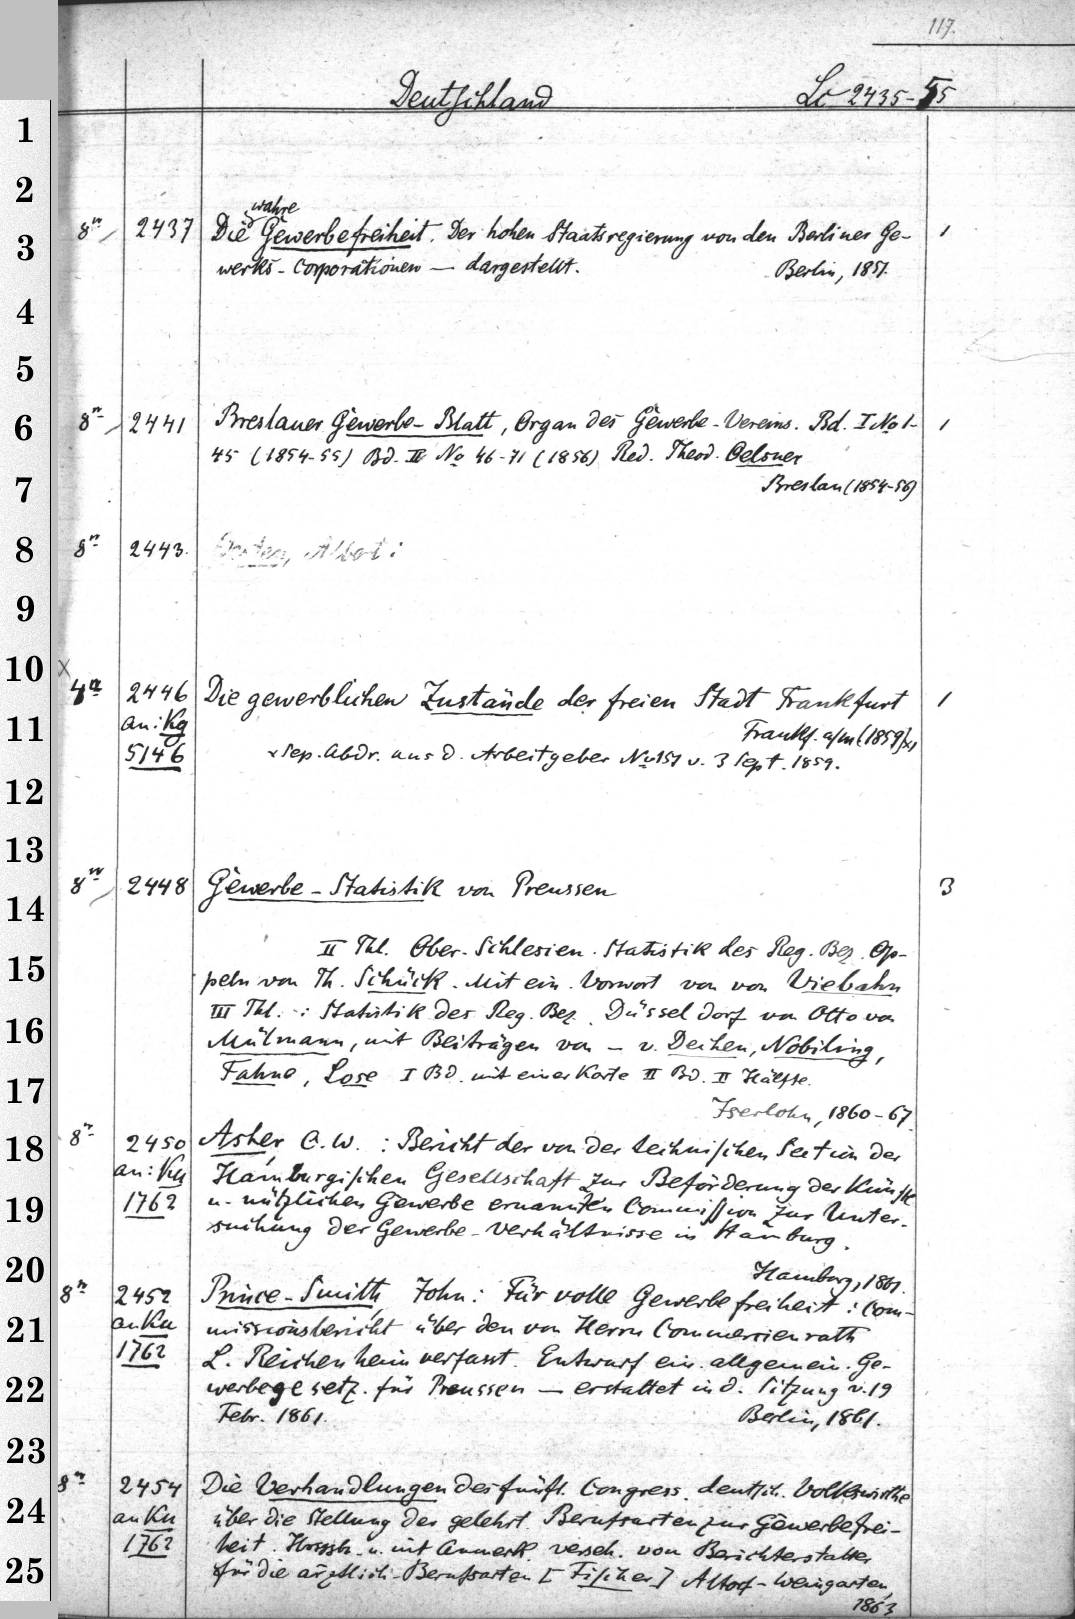 117.
Deutschland Lc 2435-55
1
2
wahre
8º 2437 Die Gewerbefreiheit. Der hohen Staatsregierung von den Berliner Ge- 1
3
werks-Corporationen — dargestellt. Berlin, 1851.
4
5
6
8º 2441 Breslauer Gewerbe-Blatt, Organ des Gewerbe-Vereins. Bd. I No 1- 1
45 (1854-55) Bd. II No 46-71 (1856) Red. Theod. Oelsner
7
Breslau (1854-56)
8
8º 2443. Albert:
9
10
x
4º 2446 Die gewerblichen Zustände der freien Stadt Frankfurt 1
11
an: Kg Frankf. a/m (1859) x)
5146 x Sep. Abdr. aus d. Arbeitgeber No 151 v. 3 Sept. 1859.
12
13
8º 2448 Gewerbe-Statistik von Preussen 3
14
II Thl. Ober-Schlesien. Statistik des Reg. Bez. Op-
15
peln von Th. Schück. Mit ein. Vorwort von von Viebahn
III Thl.: Statistik des Reg. Bez. Düsseldorf von Otto von
16
Mülmann, mit Beiträgen von - v. Dechen, Nobiling,
Fahne, Lose I Bd. mit einer Karte II Bd. II Hälfte.
17
Iserlohn, 1860-67.
18
8º 2450 Asher, C. W.: Bericht der von der technischen Section der
an: Ku Hamburgischen Gesellschaft zur Beförderung der Künste
19
1762 u. nützlichen Gewerbe ernannten Commission zur Unter-
suchung der Gewerbe-Verhältnisse in Hamburg.
20
Hamburg, 1861.
8º 2452 Prince-Smith, John: Für volle Gewerbefreiheit: Com-
21
an Ku missionsbericht über den von Herrn Commercienrath
1762 L. Reichenheim verfasst. Entwurf ein. allgemein. Ge-
22
werbegesetz. für Preussen — erstattet in d. Sitzung v. 19
Febr. 1861. Berlin, 1861.
23
8º 2454 Die Verhandlungen des fünft. Congress. deutsch. Volkswirthe
24
an Ku über die Stellung der gelehrt. Berufsarten zur Gewerbefrei-
1762 heit. u. mit Anmerk. verseh. vom Berichterstatter
25
für die ärztlich. Berufsarten [Fischer] Altorf-Weingarten,
1863